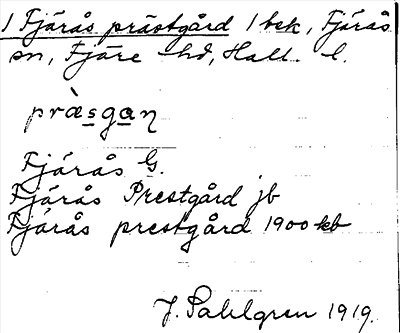 1 Fjärås prästgård 1 bek, Fjärås
sn, Fjäre hd, Hall. l.
præ̀sgaŋ
Fjärås G.
Fjärås Prestgård jb
Fjärås prestgård 1900 kb
J. Sahlgren 1919.